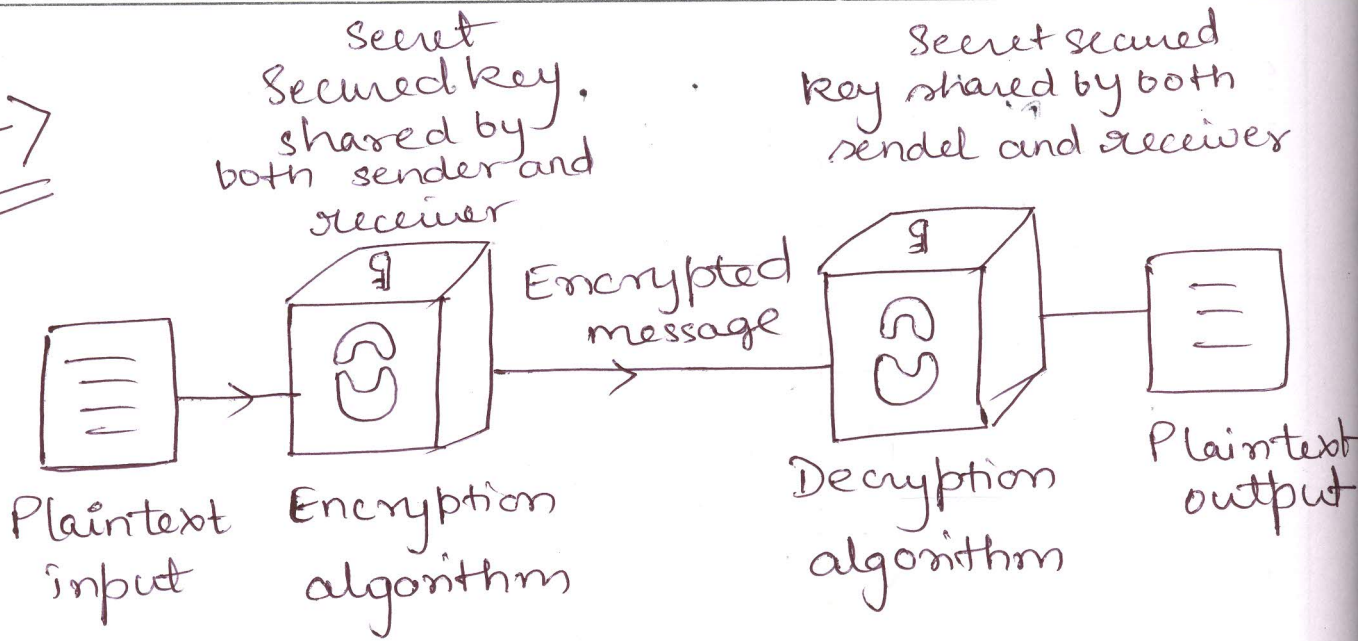 Secret
Secured key.
shared by
both sender and
receiver
Secret secured
key shared by both
sendel and receiver
Encrypted
message
Plaintext
input
Encryption
algorithm
Decryption
algorithm
Plaintext
output